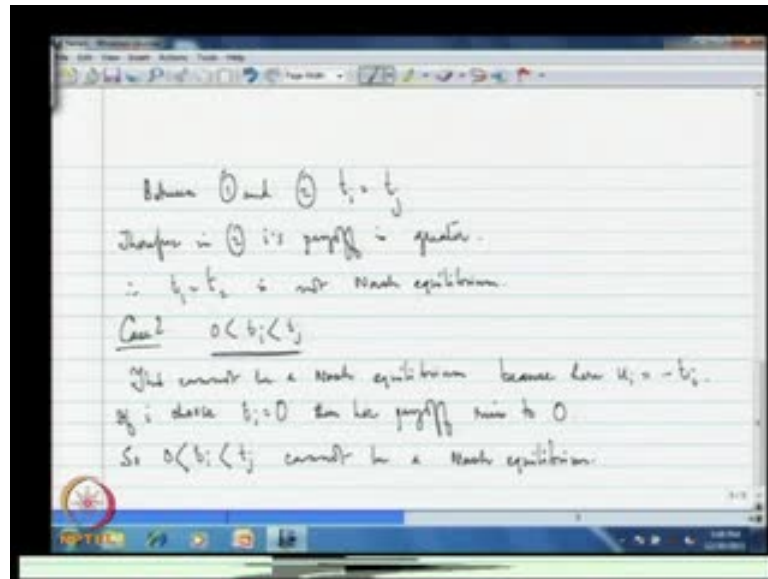 Between ① and ② tᵢ = tⱼ
Therefore in ② i's payoff is greater.
∴ t₁ = t₂ is not Nash equilibrium.
Case 2 0 < tᵢ < tⱼ
This cannot be a Nash equilibrium because here uᵢ = -tᵢ.
If i chose tᵢ = 0 then her payoff rises to 0
So 0 < tᵢ < tⱼ cannot be a Nash equilibrium.
NPTEL